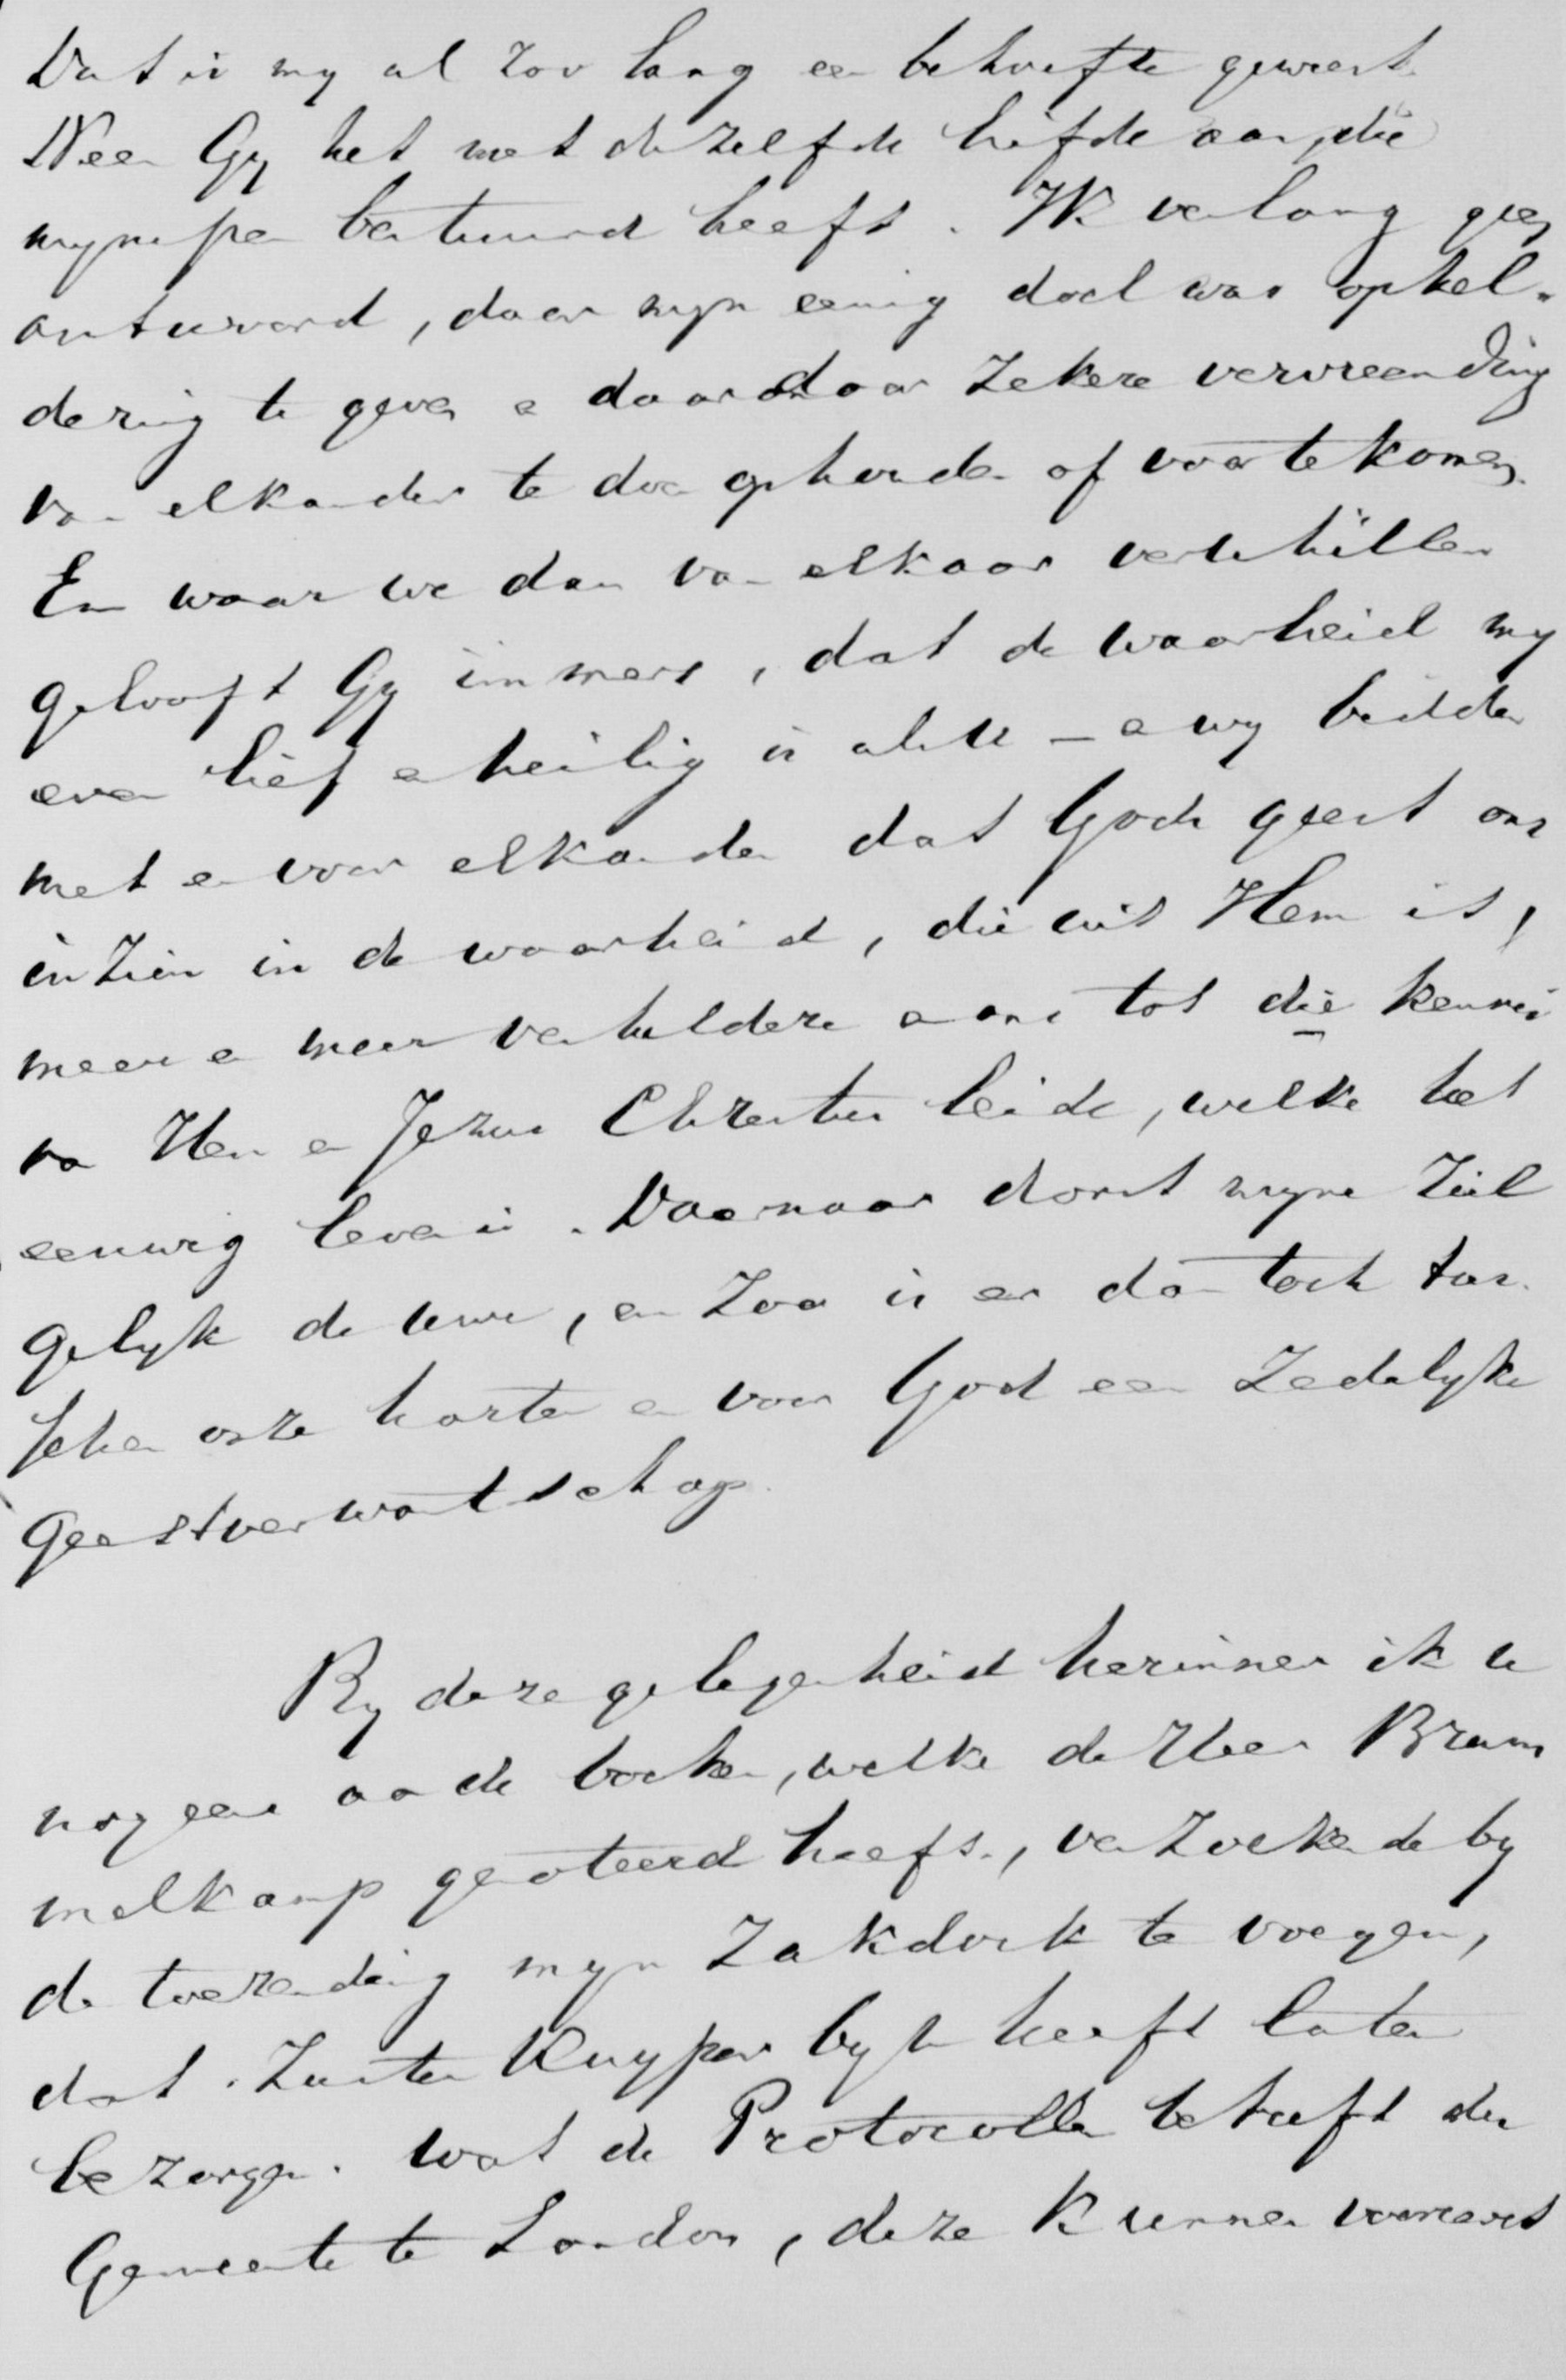 Dat is my al zoo lang een behoefte geweest.
Neem Gy het met dezelfde liefde aan, die
myne pen bestuurd heeft. Ik verlang geen
antwoord, daar myn eenig doel was ophel-
dering te geven en daardoor zekere vervreemding
van elkander te doen ophouden of voor te komen.
En waar we dan van elkaar verschillen
gelooft Gy immers, dat de waarheid my
even lief en heilig is als U - en wy bidden
met en voor elkander dat Gods geest ons
inzien in de waarheid, die uit Hem is,
meer en meer verheldere en ons tot die kennis
van Hem en Jezus Christus leide, welke het
eeuwig leven is. Daarnaar dorst myne ziel
gelyk de uwe, en zoo is er dan toch tus-
schen onze harten en voor God een zedelyke
geestverwantschap.
By deze gelegenheid herinner ik u
nog eens aan de boeken, welke de Heer Bram
melkamp genoteerd heeft, verzoekende by
de toezending myn zakdoek te voegen,
dat Zuster Kuyper by u heeft laten
bezorgen. Wat de Protocollen betreft der
Gemeente te London, deze kunnen vooreerst